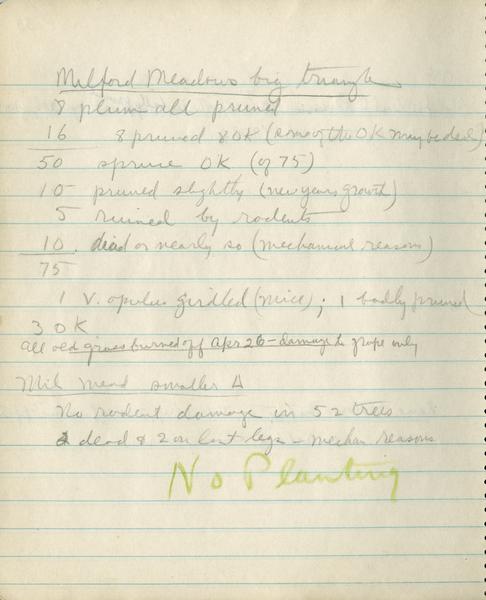 Milford Meadows big triangle
8 plum all pruned
16 8 pruned 8 OK (some of the OK may be dead)
50 spruce OK (of 75)
10 pruned slightly (new years growth)
5 ruined by rodents
10 dead or nearly so (mechanical reasons)
75
1 V. opulus girdled (mice); 1 badly pruned
3 OK
All old grass burned off Apr 26 - damage to grape only
Mil Mead smaller Δ
No rodent damage in 52 trees
2 dead & 2 on last legs - mechan reasons
No Planting